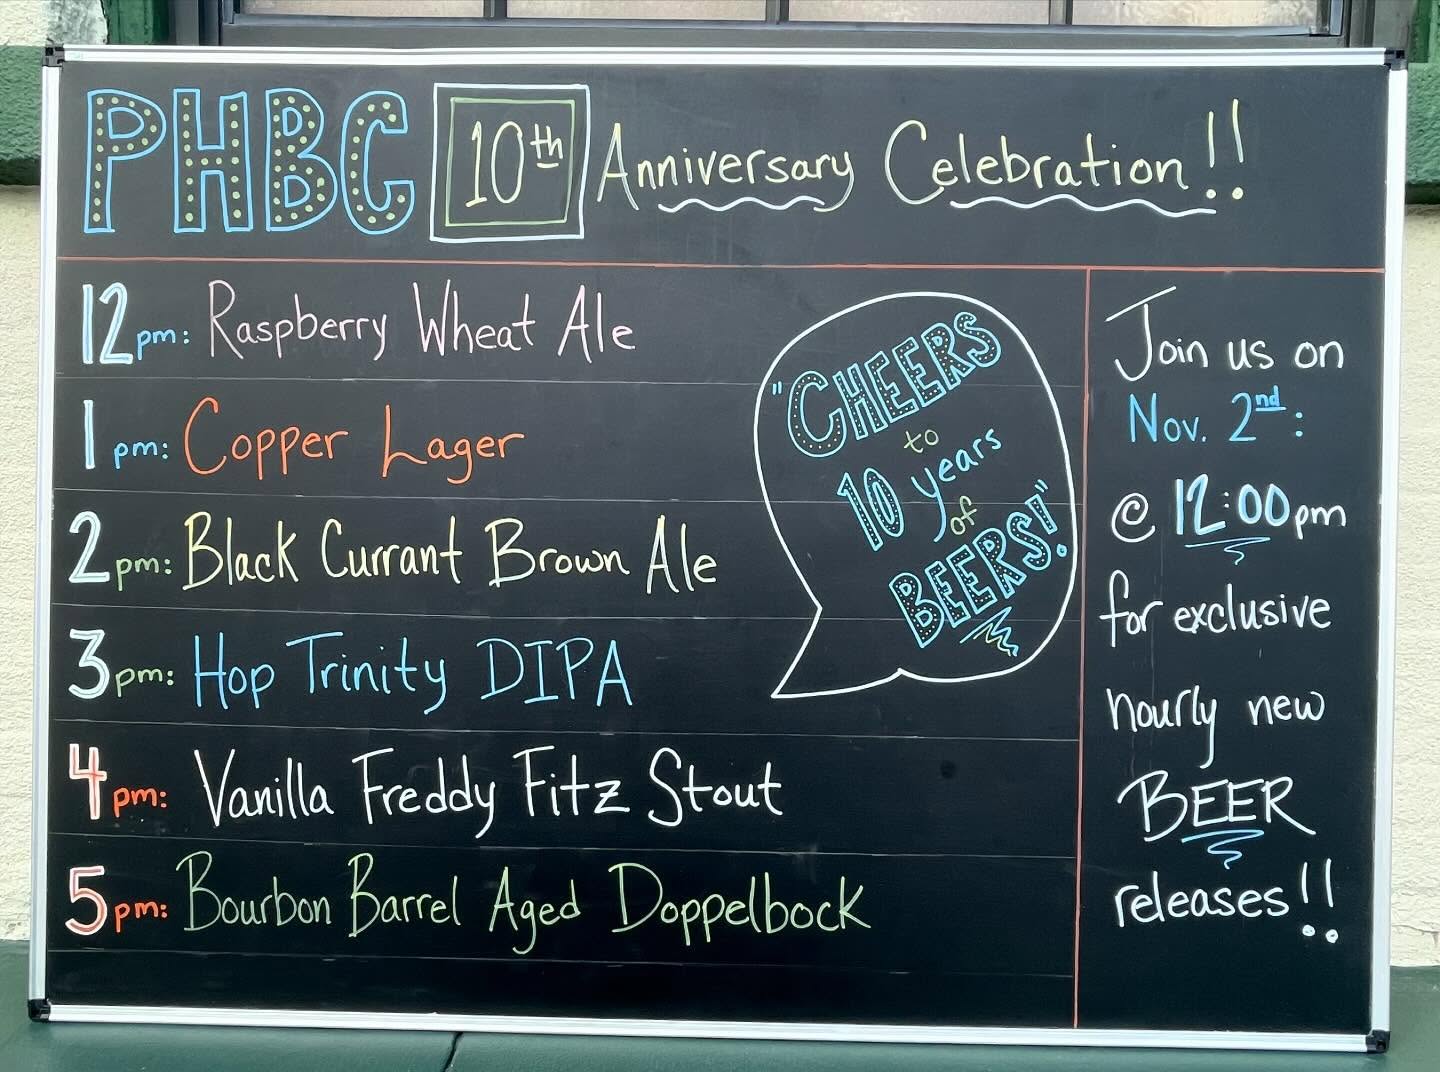 PHBC 10th Anniversary Celebration!!
12pm: Raspberry Wheat Ale
1pm: Copper Lager
2pm: Black Currant Brown Ale
3pm: Hop Trinity DIPA
4pm: Vanilla Freddy Fitz Stout
5pm: Bourbon Barrel Aged Doppelbock
"CHEERS
to
10 years
of
BEERS!"
Join us on
Nov. 2nd:
@ 12:00pm
for exclusive
hourly new
BEER
releases!!